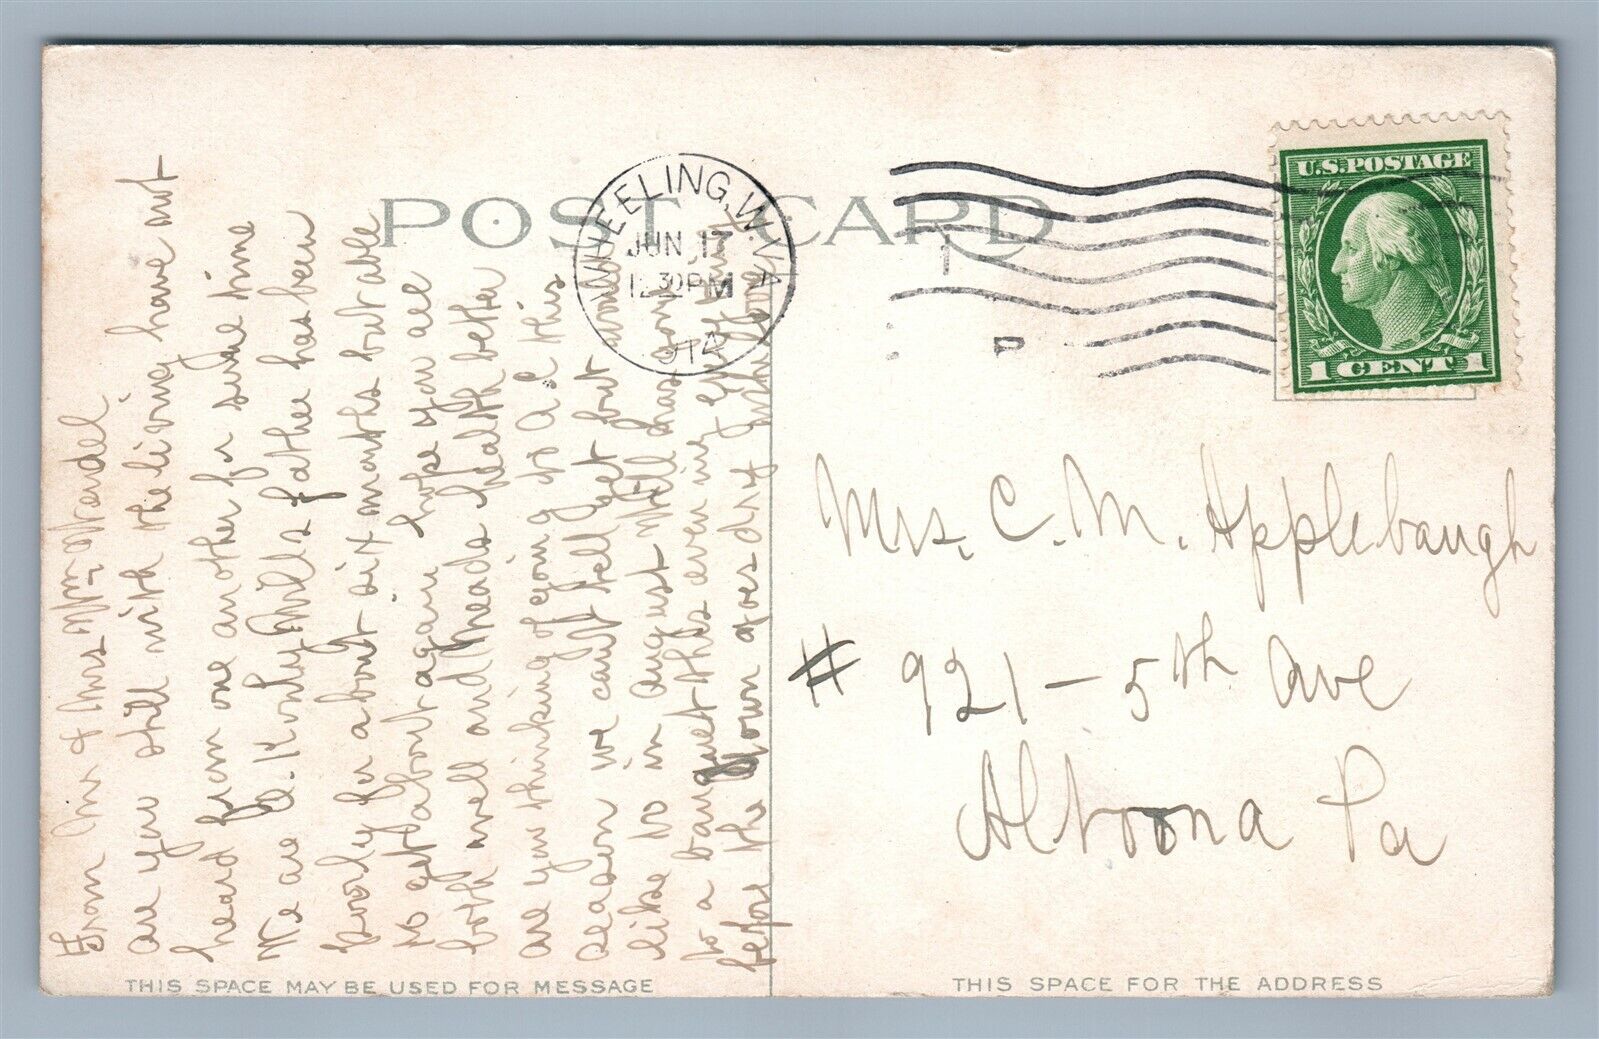 POST CARD
WHEELING, W.VA.
JUN 17
12 30 PM
1914
U.S. POSTAGE
1 CENT 1
From Mr & Mrs Wm Wardel
are you still with the living have not
heard from one another for some time
We are O.K only Wills father has been
poorly for about six months but able
to get about again hope you are
both well and Meads health better
are you thinking of going to A.C this
season we cant tell yet but would
like to in august Will has gone
to a banquet this evening
before the town goes dry
Mrs. C. M. Applebaugh
# 921 - 5th Ave
Altoona Pa
THIS SPACE MAY BE USED FOR MESSAGE
THIS SPACE FOR THE ADDRESS